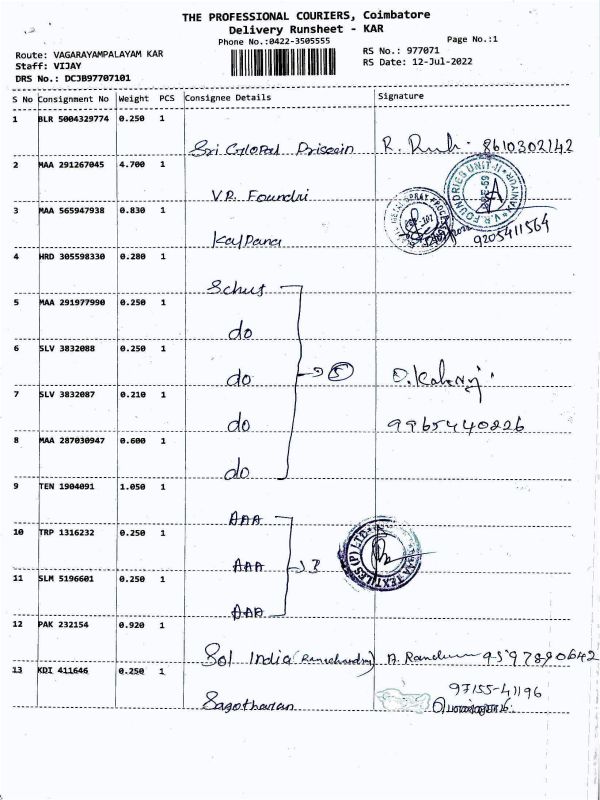 THE PROFESSIONAL COURIERS, Coimbatore
Delivery Runsheet - KAR
Phone No.:0422-3505555
Page No.:1
Route: VAGARAYAMPALAYAM KAR
RS No.: 977071
Staff: VIJAY
RS Date: 12-Jul-2022
DRS No.: DCJB97707101
S No Consignment No Weight PCS Consignee Details Signature
1 BLR 5004329774 0.250 1
Sri Global R. 8610302142
2 MAA 291267045 4.700 1
V.R. Foundri
V.R. FOUNDRIES UNIT-II VAIYUR
3 MAA 565947938 0.830 1
Kalpana 9205411564
4 HRD 305598330 0.280 1
Schus
5 MAA 291977990 0.250 1
do
6 SLV 3832088 0.250 1
do 5
7 SLV 3832087 0.210 1
do 9965440826
8 MAA 287030947 0.600 1
do
9 TEN 1904091 1.050 1
AAA
10 TRP 1316232 0.250 1
AAA
TEXTILES (P) LTD
11 SLM 5196601 0.250 1
AAA
12 PAK 232154 0.920 1
Sol India (Ramachandran) 9597890642
13 KDI 411646 0.250 1
97155-41196
Sagotharan